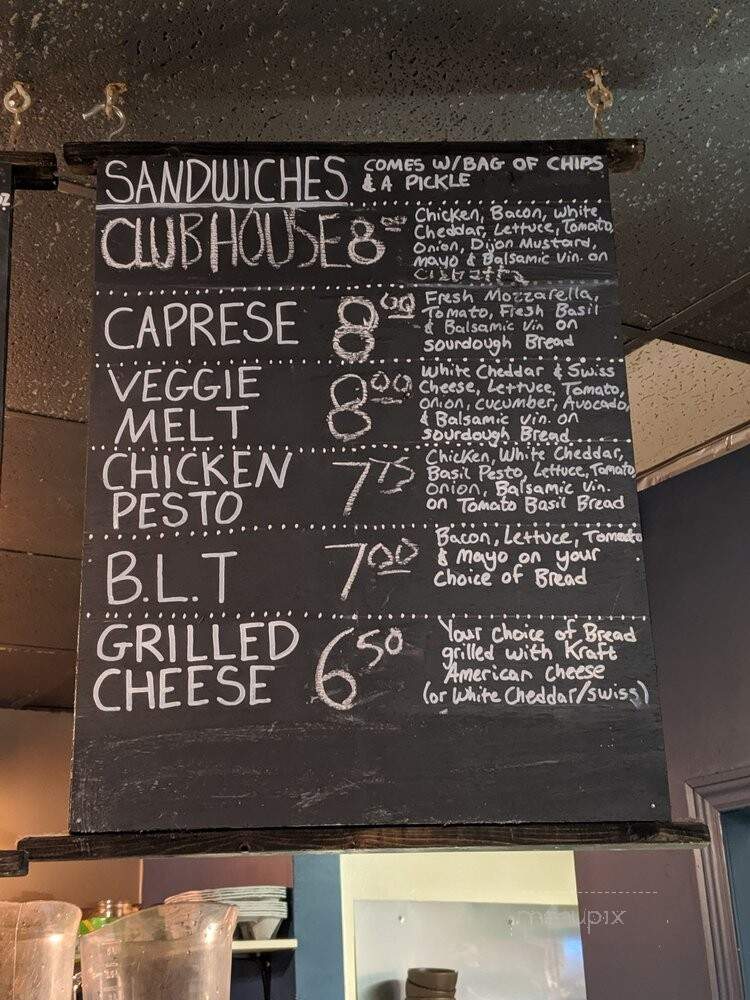 SANDWICHES COMES W/BAG OF CHIPS
& A PICKLE
CLUBHOUSE 8⁰⁰ Chicken, Bacon, White
Cheddar, Lettuce, Tomato,
Onion, Dijon Mustard,
Mayo & Balsamic Vin. on
CAPRESE 8⁰⁰ Fresh Mozzarella,
Tomato, Fresh Basil
& Balsamic Vin on
sourdough Bread
VEGGIE
MELT 8⁰⁰ White Cheddar & Swiss
Cheese, Lettuce, Tomato,
Onion, Cucumber, Avocado,
& Balsamic vin. on
sourdough Bread
CHICKEN
PESTO 7⁷⁵ Chicken, White Cheddar,
Basil Pesto, Lettuce, Tomato
Onion, Balsamic Vin.
on Tomato Basil Bread
B.L.T 7⁰⁰ Bacon, Lettuce, Tomato
& Mayo on your
Choice of Bread
GRILLED
CHEESE 6⁵⁰ Your choice of Bread
grilled with Kraft
American cheese
(or White Cheddar/swiss)
menupix